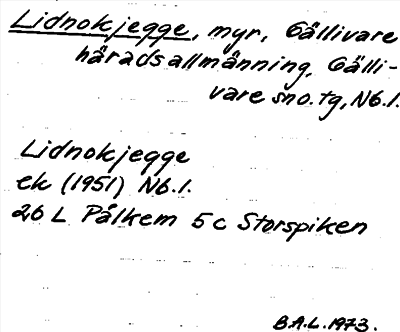 Lidnokjegge, myr, Gällivare
häradsallmänning, Gälli-
vare sno. tg, N6.1.
Lidnokjegge
ek (1951) N6.1.
26 L Pålkem 5 c Storspiken
B.A.L. 1973.